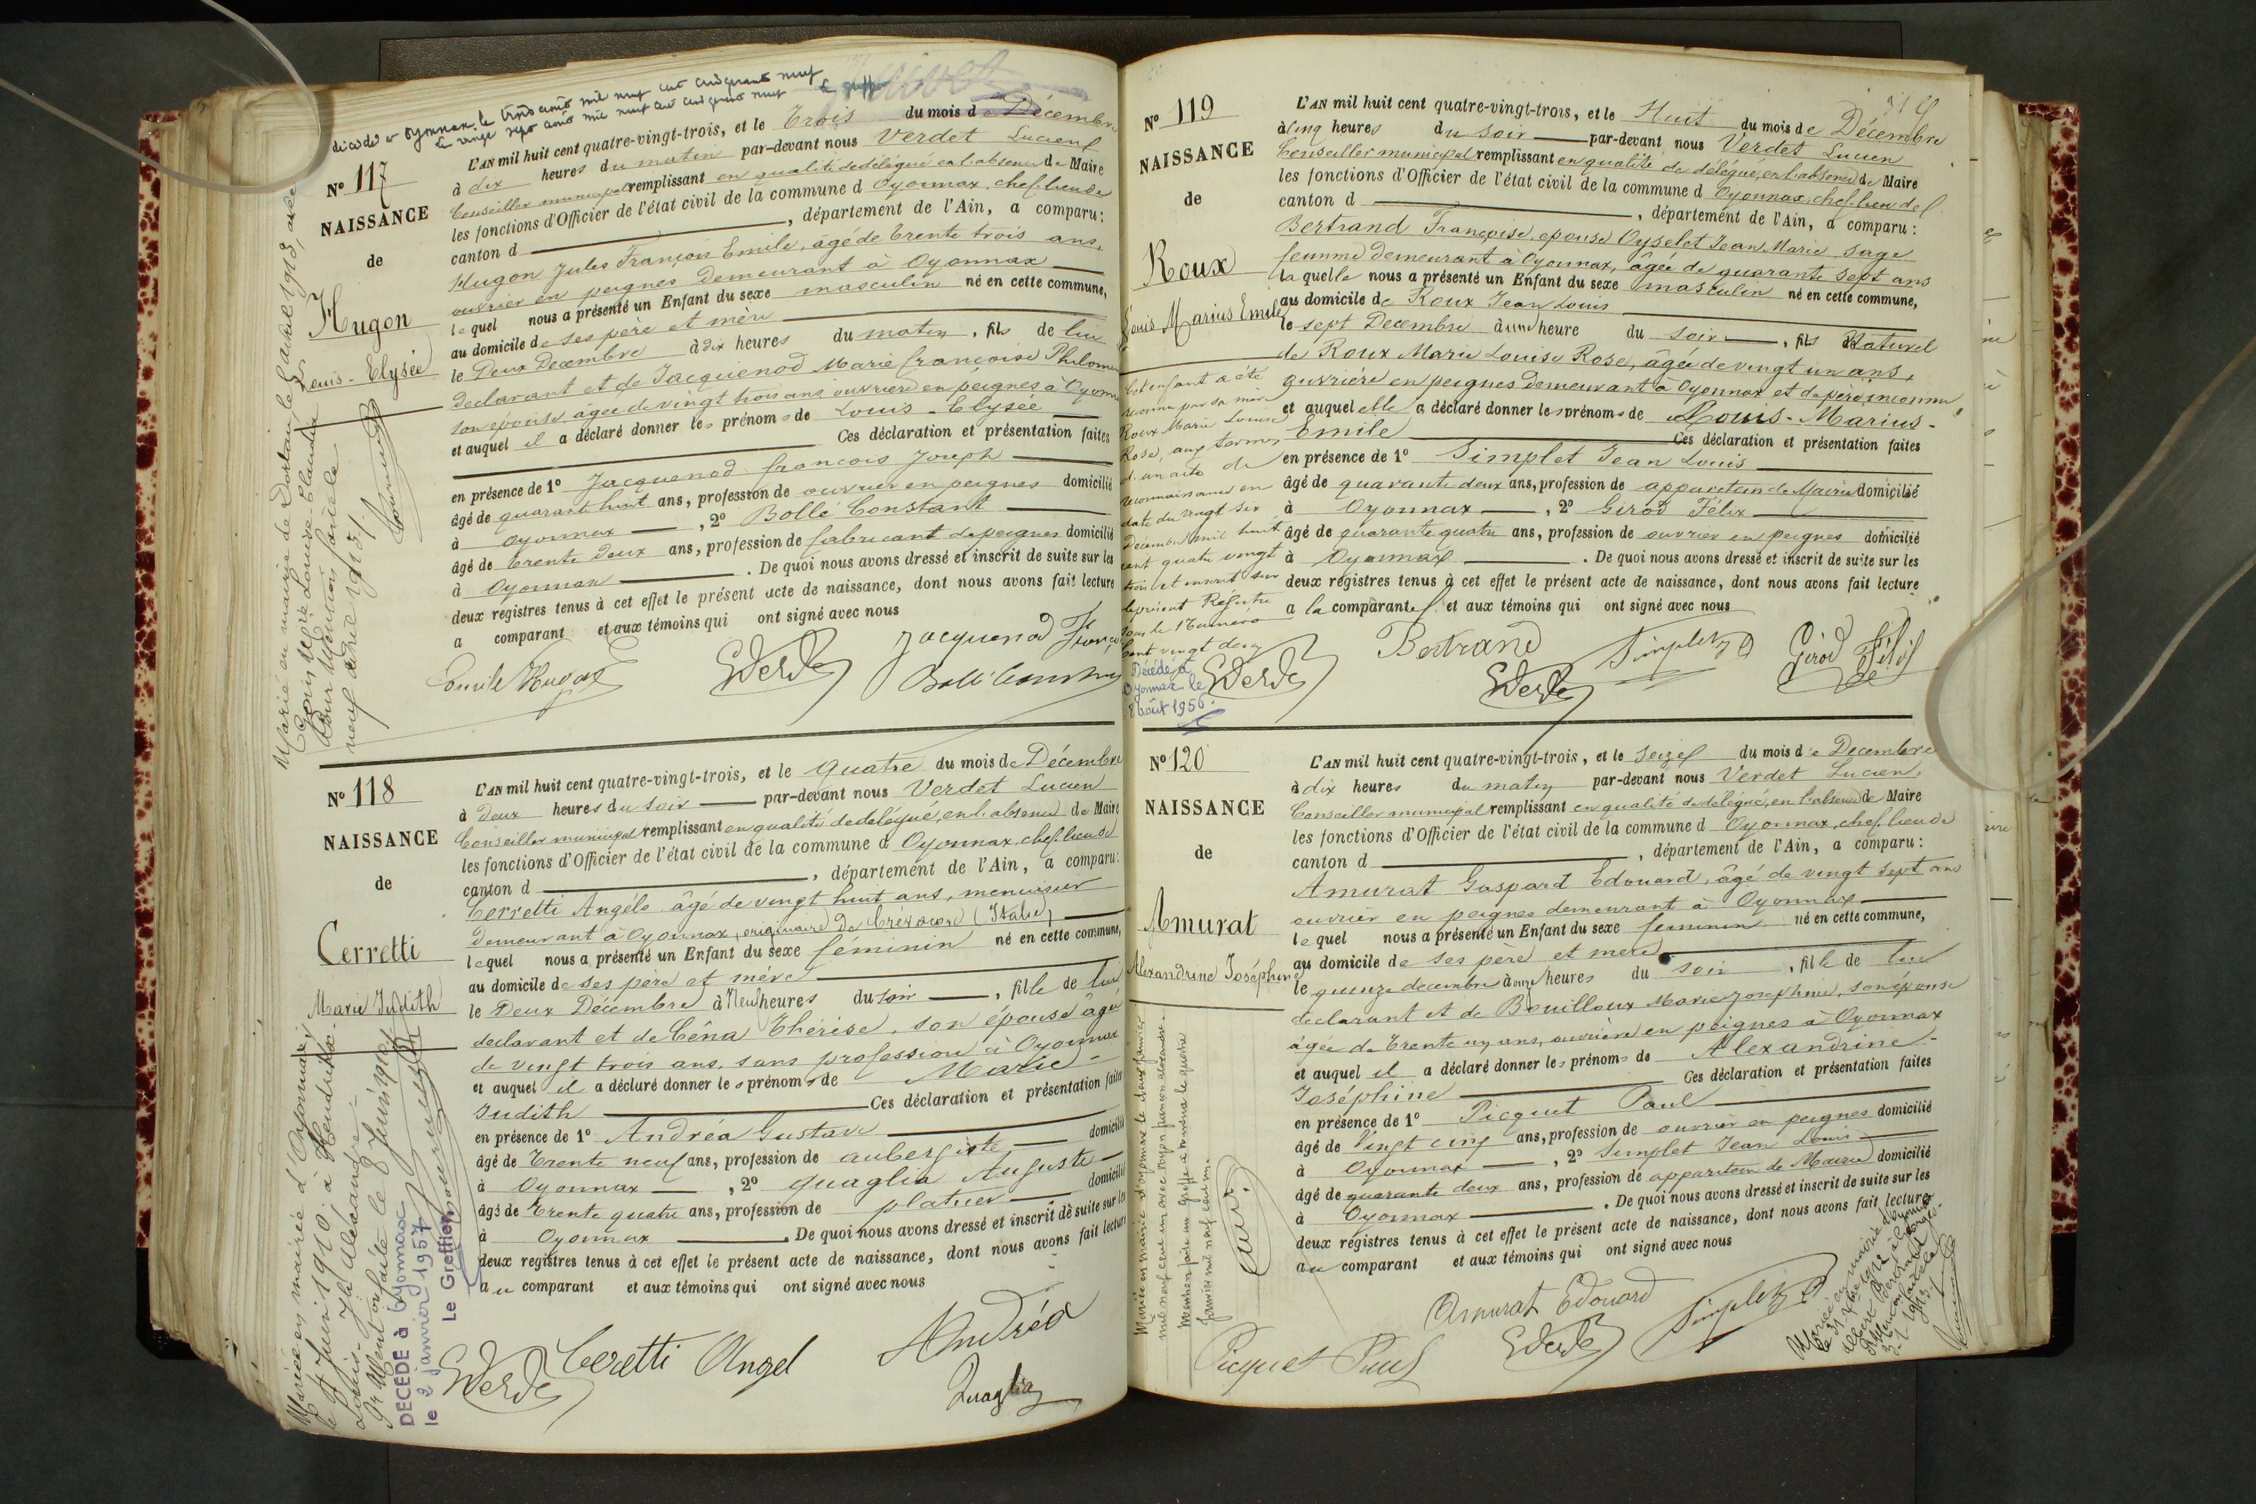 décédé à Oyonnax le trois août mil neuf cent cinquante neuf
le vingt sept août mil neuf cent cinquante neuf
N° 117
NAISSANCE
de
Hugon
Louis-Elysée
L'AN mil huit cent quatre-vingt-trois, et le Trois du mois de Décembre
à dix heures du matin par-devant nous Verdet Lucien
Conseiller municipal remplissant en qualité de délégué en l'absence de Maire
les fonctions d'Officier de l'état civil de la commune d Oyonnax, chef-lieu de
canton d , département de l'Ain, a comparu:
Hugon Jules François Emile, âgé de trente trois ans,
ouvrier en peignes demeurant à Oyonnax
lequel nous a présenté un Enfant du sexe masculin né en cette commune,
au domicile de ses père et mère
le Deux Décembre à dix heures du matin, fils de lui
déclarant et de Jacquenod Marie françoise Philomène
son épouse, âgée de vingt trois ans ouvrière en peignes à Oyonnax
et auquel il a déclaré donner les prénoms de Louis-Elysée
Ces déclaration et présentation faites
en présence de 1° Jacquenod françois Joseph
âgé de quarante huit ans, profession de ouvrier en peignes domicilié
à Oyonnax , 2° Bollé Constant
âgé de trente deux ans, profession de fabricant de peignes domicilié
à Oyonnax . De quoi nous avons dressé et inscrit de suite sur les
deux registres tenus à cet effet le présent acte de naissance, dont nous avons fait lecture
a comparant et aux témoins qui ont signé avec nous
Emile Hugon
Verdet
Jacquenod Franço
Bollé Constant
Marié en mairie de Dortan le avril 1913, avec
Marie Louise-Claudia
Pour mention faite le
neuf avril 1913
N° 118
NAISSANCE
de
Cerretti
Marie Judith
L'AN mil huit cent quatre-vingt-trois, et le quatre du mois de Décembre
à Deux heures du soir par-devant nous Verdet Lucien
Conseiller municipal remplissant en qualité de délégué, en l'absence de Maire
les fonctions d'Officier de l'état civil de la commune d Oyonnax, chef-lieu de
canton d , département de l'Ain, a comparu:
Cerretti Angélo âgé de vingt huit ans, menuisier
demeurant à Oyonnax, originaire de (Italie)
lequel nous a présenté un Enfant du sexe féminin né en cette commune,
au domicile de ses père et mère
le Deux Décembre à Neuf heures du soir , fille de lui
déclarant et de Céna Thérèse, son épouse âgée
de vingt trois ans, sans profession à Oyonnax
et auquel il a déclaré donner les prénoms de Marie-
Judith Ces déclaration et présentation faites
en présence de 1° Andréa Gustave
âgé de Trente neuf ans, profession de aubergiste domicilié
à Oyonnax , 2° quaglia Auguste
âgé de Trente quatre ans, profession de platrier domicilié
à Oyonnax . De quoi nous avons dressé et inscrit de suite sur les
deux registres tenus à cet effet le présent acte de naissance, dont nous avons fait lecture
au comparant et aux témoins qui ont signé avec nous
Verdet
Ceretti Angel
Andréa
Quaglia
Mariée en mairie d'Oyonnax
le 7 Juin 1910. à Hendrikx
Louis-Jh Alexandre-
Pr Mention faite le 8 Juin 1910
DÉCÉDÉ à Oyonnax
le 2 janvier 1957
Le Greffier,
N° 119
NAISSANCE
de
Roux
Louis Marius Emile
L'AN mil huit cent quatre-vingt-trois, et le Huit du mois de Décembre
à cinq heures du soir par-devant nous Verdet Lucien
Conseiller municipal remplissant en qualité de délégué, en l'absence de Maire
les fonctions d'Officier de l'état civil de la commune d Oyonnax chef-lieu de
canton d , département de l'Ain, a comparu:
Bertrand Françoise, épouse Oyselet Jean Marie sage
femme demeurant à Oyonnax, âgée de quarante sept ans
laquelle nous a présenté un Enfant du sexe masculin né en cette commune,
au domicile de Roux Jean Louis
le sept Décembre à une heure du soir , fils Naturel
de Roux Marie Louise Rose, âgée de vingt un ans,
ouvrière en peignes demeurant à Oyonnax et de père inconnu
et auquel elle a déclaré donner les prénoms de Louis-Marius-
Emile Ces déclaration et présentation faites
en présence de 1° Simplet Jean Louis
âgé de quarante deux ans, profession de appariteur de Mairie domicilié
à Oyonnax , 2° Girod Félix
âgé de quarante quatre ans, profession de ouvrier en peignes domicilié
à Oyonnax . De quoi nous avons dressé et inscrit de suite sur les
deux registres tenus à cet effet le présent acte de naissance, dont nous avons fait lecture
a la comparante et aux témoins qui ont signé avec nous
Verdet
Bertrand
Verdet
Simplet
Girod Félix
Cet enfant a été
reconnu par sa mère
Roux Marie Louise
Rose, aux termes
d'un acte de
reconnaissance en
date du vingt six
Décembre mil huit
cent quatre vingt
trois et inscrit sur
le présent Registre
sous le Numéro
Cent vingt deux
Décédé à
Oyonnax le
8 août 1956.
N° 120
NAISSANCE
de
Amurat
Alexandrine Joséphine
L'AN mil huit cent quatre-vingt-trois, et le seize du mois de Décembre
à dix heures du matin par-devant nous Verdet Lucien,
Conseiller municipal remplissant en qualité de délégué, en l'absence de Maire
les fonctions d'Officier de l'état civil de la commune d Oyonnax, chef-lieu de
canton d , département de l'Ain, a comparu:
Amurat Gaspard Edouard, âgé de vingt sept ans
ouvrier en peignes demeurant à Oyonnax
lequel nous a présenté un Enfant du sexe feminin né en cette commune,
au domicile de ses père et mère
le quinze décembre à onze heures du soir , fille de lui
déclarant et de Bouilloux Marie Joséphine, son épouse
âgée de Trente un ans, ouvrière en peignes à Oyonnax
et auquel il a déclaré donner les prénoms de Alexandrine-
Joséphine Ces déclaration et présentation faites
en présence de 1° Picquet Paul
âgé de Vingt cinq ans, profession de ouvrier en peignes domicilié
à Oyonnax , 2° Simplet Jean Louis
âgé de quarante deux ans, profession de appariteur de Mairie domicilié
à Oyonnax . De quoi nous avons dressé et inscrit de suite sur les
deux registres tenus à cet effet le présent acte de naissance, dont nous avons fait lecture
au comparant et aux témoins qui ont signé avec nous
Amurat Edouard
Picquet Paul
Verdet
Simplet
Mariée en mairie d'Oyonnax le deux janvier
mil neuf cent un avec
Mention faite au greffe à Nantua le quatre
Janvier mil neuf cent un.